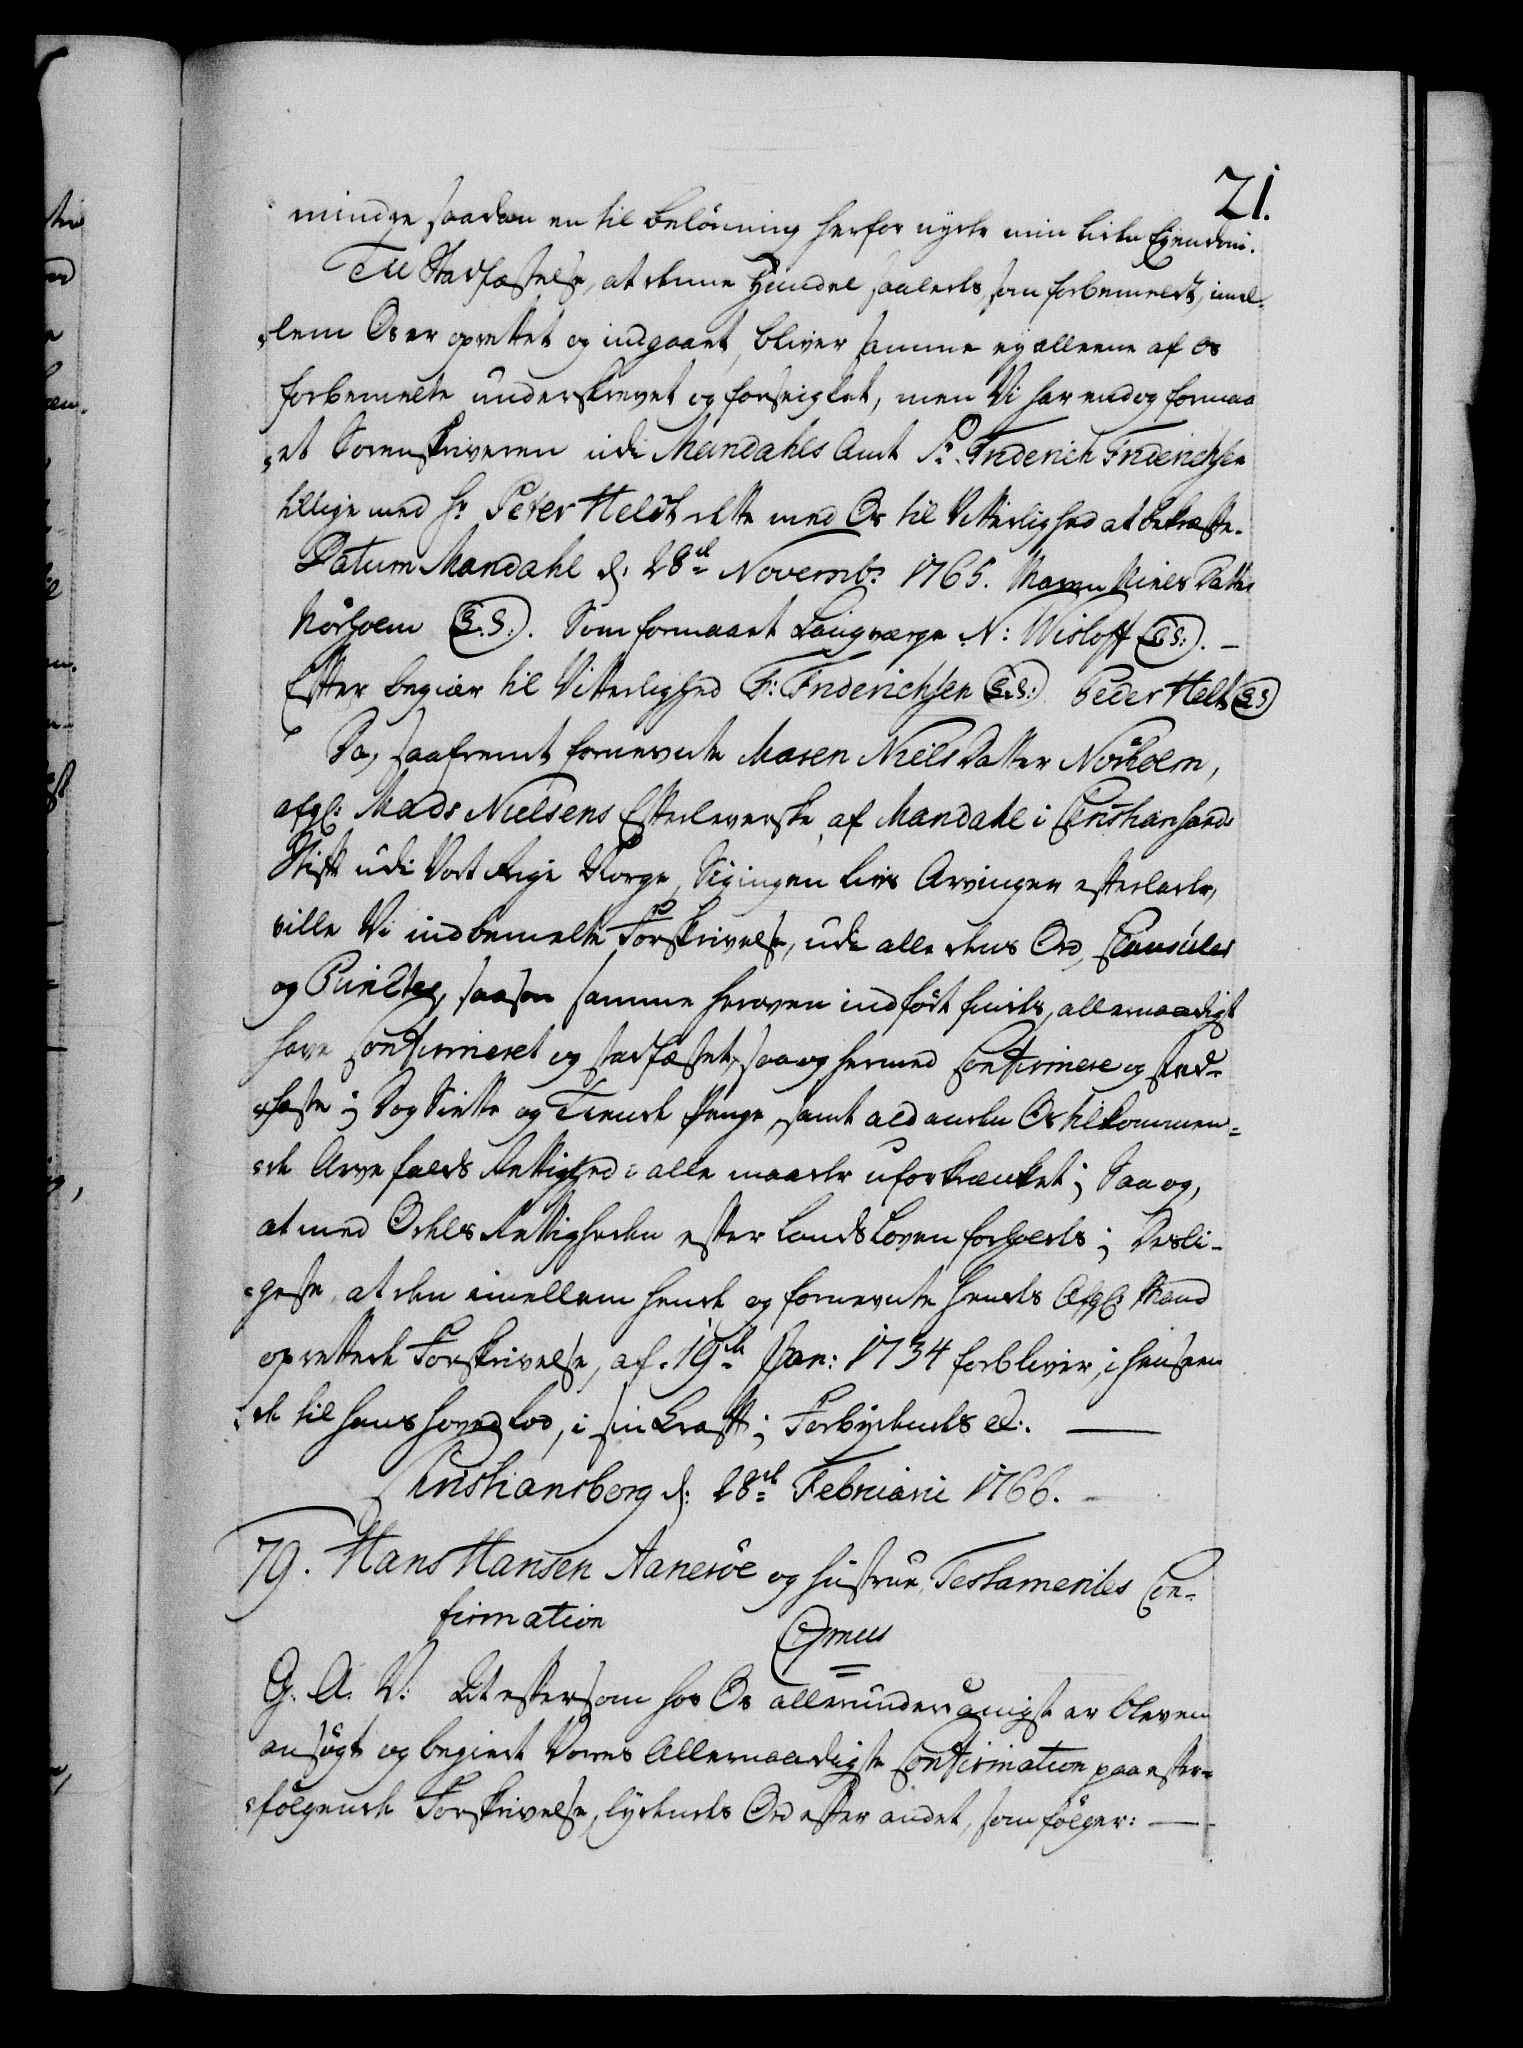 21.
mindre saadan en til belönning herfor nyde min liden Ejendom.
Til Stadfæstelse, at denne Handel saaledes, som forbemeldt, imel-
lem Os er oprettet og indgaaet, bliver samme ey alleene af os
forbemelte underskrevet og forseiglet, men Vi har endog formaa
et Sorenskriveren udi Mandahls Amt Sr. Friderich Friderichsen
tillige med Hr. Peter Heldt dette med Os til Vitterlighed at bekræfte.
Datum Mandahl d: 28de Novembr 1765. Maren Niels Datter
Nörholm (L.S.). Som formaaet Laugværge N: Wisloff (L.S:). -
Efter begiær til Vitterlighed F: Friderichsen (L.S:) Peder Helt (L.S)
Da, saafremt fornevnte Maren Niels Datter Nörholm,
afgl: Mads Nielsens Efterleverske, af Mandahl i Christiansands
Stift udi Vort Rige Norge, Sig ingen livs Arvinger efterlader,
ville Vi indbemelte Forskrivelse, udi alle dens Ord, Clausuler
og Puncter, saasom samme heroven indfört findes, allernaadigst
have Confirmeret og stadfæstet, saa og hermed Confirmere og stad-
fæste; Dog Siette og Tiende Penge, samt ald anden Os tilkommen-
de Arve falds Rettighed i alle maader uforkrænket; Saa og,
at med Odels Rettigheden efter Lands Loven forholdes; Desli-
geste, at den imellem hende og fornevnte hendes Afgl: Mand
oprettede Forskrivelse, af 19de Jan: 1734 forbliver, i henseen
de til hans hoved lod, i sin Kraft; Forbydendes etc. —
Christiansborg d: 28de Februarii 1766. -
79. Hans Hansen Aaneröe og hustrue Testamentes Con-
firmation
G. A. V: At eftersom hos Os allerunderdanigst er bleven
ansögt og begiert Vores Allernaadigste Confirmation paa efter-
fölgende Forskrivelse, lydendes Ord efter andet, som fölger: —